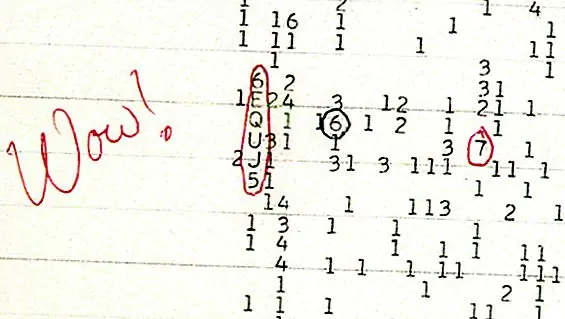 2 1 4
1 16 1 1 1
1 11 1 1 11
1 3 1
6 2 31
1 E 24 3 12 1 21 1
Q 1 16 1 2 1 1
Wow!
U 31 1 3 7 1
2 J 1 31 3 111 11 1
5 1 1 1
14 1 113 2 1
1 3 1 1 1
1 4 1 1 1 11
4 1 1 1 11 111
1 1 2 1
1 1 1 11 1